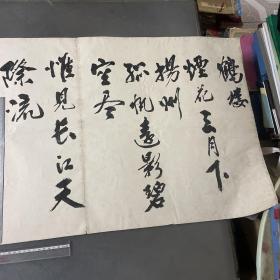 鹤楼
烟花三月下
扬州
孤帆远影碧
空尽
惟见长江天
际流